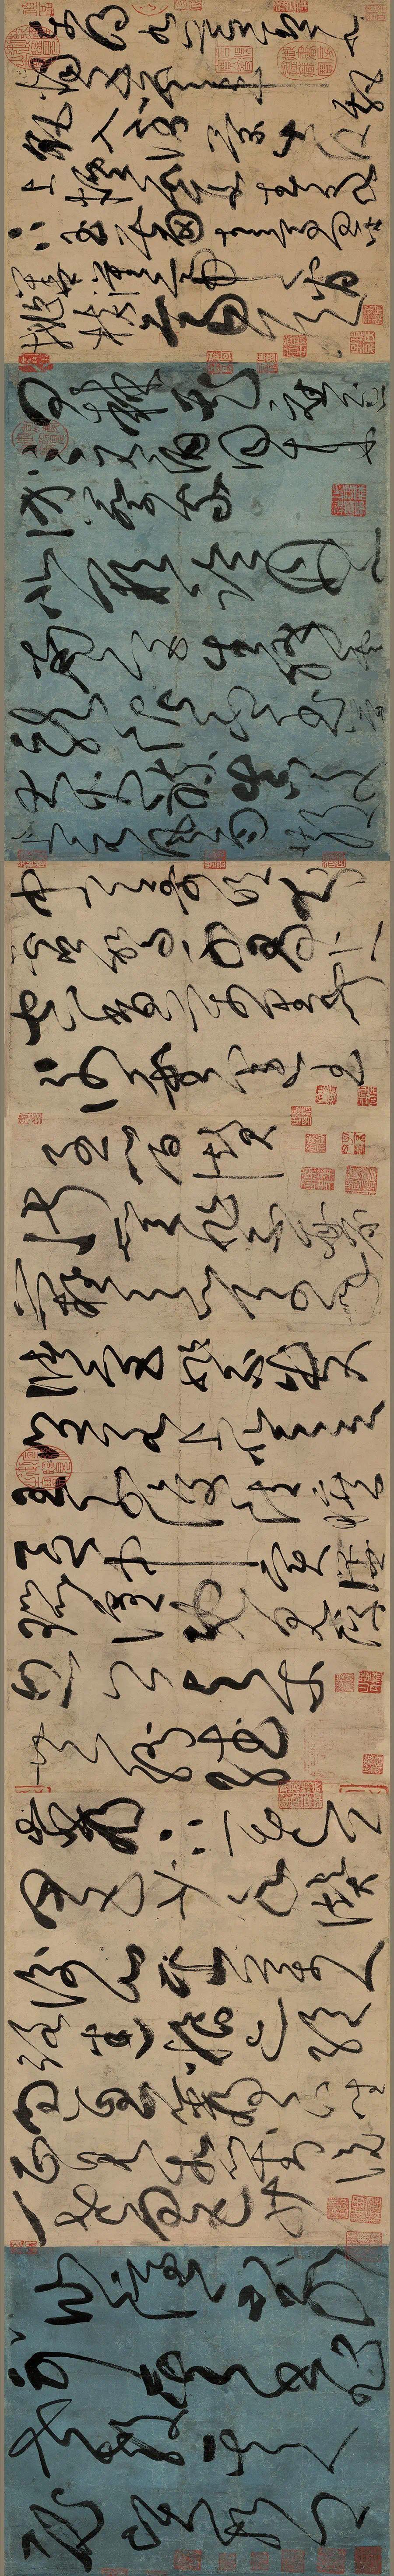 東明九芝蓋
北燭五雲車
飄颻入倒景
出沒上煙霞
春泉下玉霤
青鳥向金華
漢帝看桃核
齊侯問棘花
應逐上元酒
同來訪蔡家
北闕臨丹水
南宮生絳雲
龍泥印玉簡
大火練真文
上元風雨散
中天歌吹分
虛駕千尋上
空香萬里聞
謝靈運王子晉讚
淑質非不麗
難以之百年
儲宮非不貴
豈若上登天
王子復清曠
區中實嘩囂
喧既見浮丘公
與爾共紛繙
巖下一老公四五少年讚
衡山採藥人
路迷糧亦絕
過息巖下坐
正見相對說
一老四五少
仙隱不別可
其書非世教
其人必賢哲